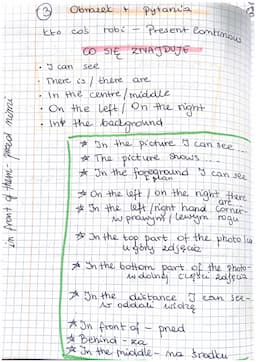 3 Obrazek + pytania
kto coś robi - Present Continuous
CO SIĘ ZNAJDUJE
• I can see
• There is / there are
• In the centre/middle
• On the left / On the right
• In the background
in front of them - przed nimi
* In the picture I can see...
* The picture shows...
* In the foreground I can see
I plan
* On the left / on the right there are
* In the left/right hand corner -
w prawym / lewym rogu
* In the top part of the photo
w górnej zdjęcia
* In the bottom part of the photo -
w dolnej części zdjęcia
* In the distance I can see -
w oddali widzę
* In front of - pred
* Behind - za
* In the middle - na środku